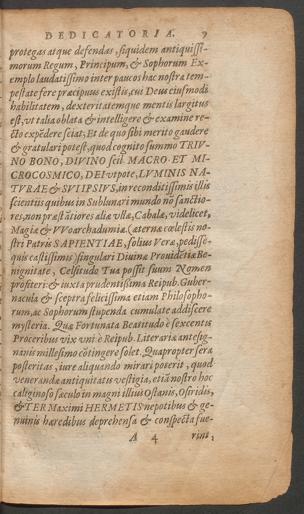 DEDICATORIA. 9
protegas atque defendas, siquidem antiquissi-
morum Regum, Principum, & Sophorum Ex-
emplo laudatissimo inter paucos hac nostra tem-
pestate fere præcipuus existis, cui Deus eiusmodi
habilitatem, dexteritatemque mentis largitus
est, vt talia oblata & intelligere & examine re-
cto expēdere sciat; Et de quo sibi merito gaudere
& gratulari potest, quod cognito summo TRIV-
NO BONO, DIVINO scil. MACRO ET MI-
CROCOSMICO, DEI vtpote, LVMINIS NA-
TVRAE & SVI IPSIVS, in reconditissimis illis
scientiis quibus in Sublunari mundo nō sanctio-
res, non præstātiores aliæ vllæ, Cabalæ, videlicet,
Magiæ & VVoarchadumiæ (æternæ cœlestis no-
stri Patris SAPIENTIAE, solius Veræ, pedisse-
quis castissimis) singulari Diuinæ Prouidētiæ Be-
nignitate, Celsitudo Tua possit suum Nomen
profiteri: & iuxta prudentissima Reipub. Guber-
nacula & sceptra felicissima etiam Philosopho-
rum, ac Sophorum stupenda cumulate addiscere
mysteria. Quæ Fortunata Beatitudo è sexcentis
Proceribus vix vni è Reipub. Literariæ antesig-
nanis millesimo cōtingere solet. Quapropter sera
posteritas, iure aliquando mirari poterit, quod
veneranda antiquitatis vestigia, etiā nostro hoc
caliginoso sæculo in magni illius Ostanis, Osiridis,
& TER Maximi HERMETIS nepotibus & ge-
nuinis hæredibus deprehensa & conspecta fue-
A 4 rint;